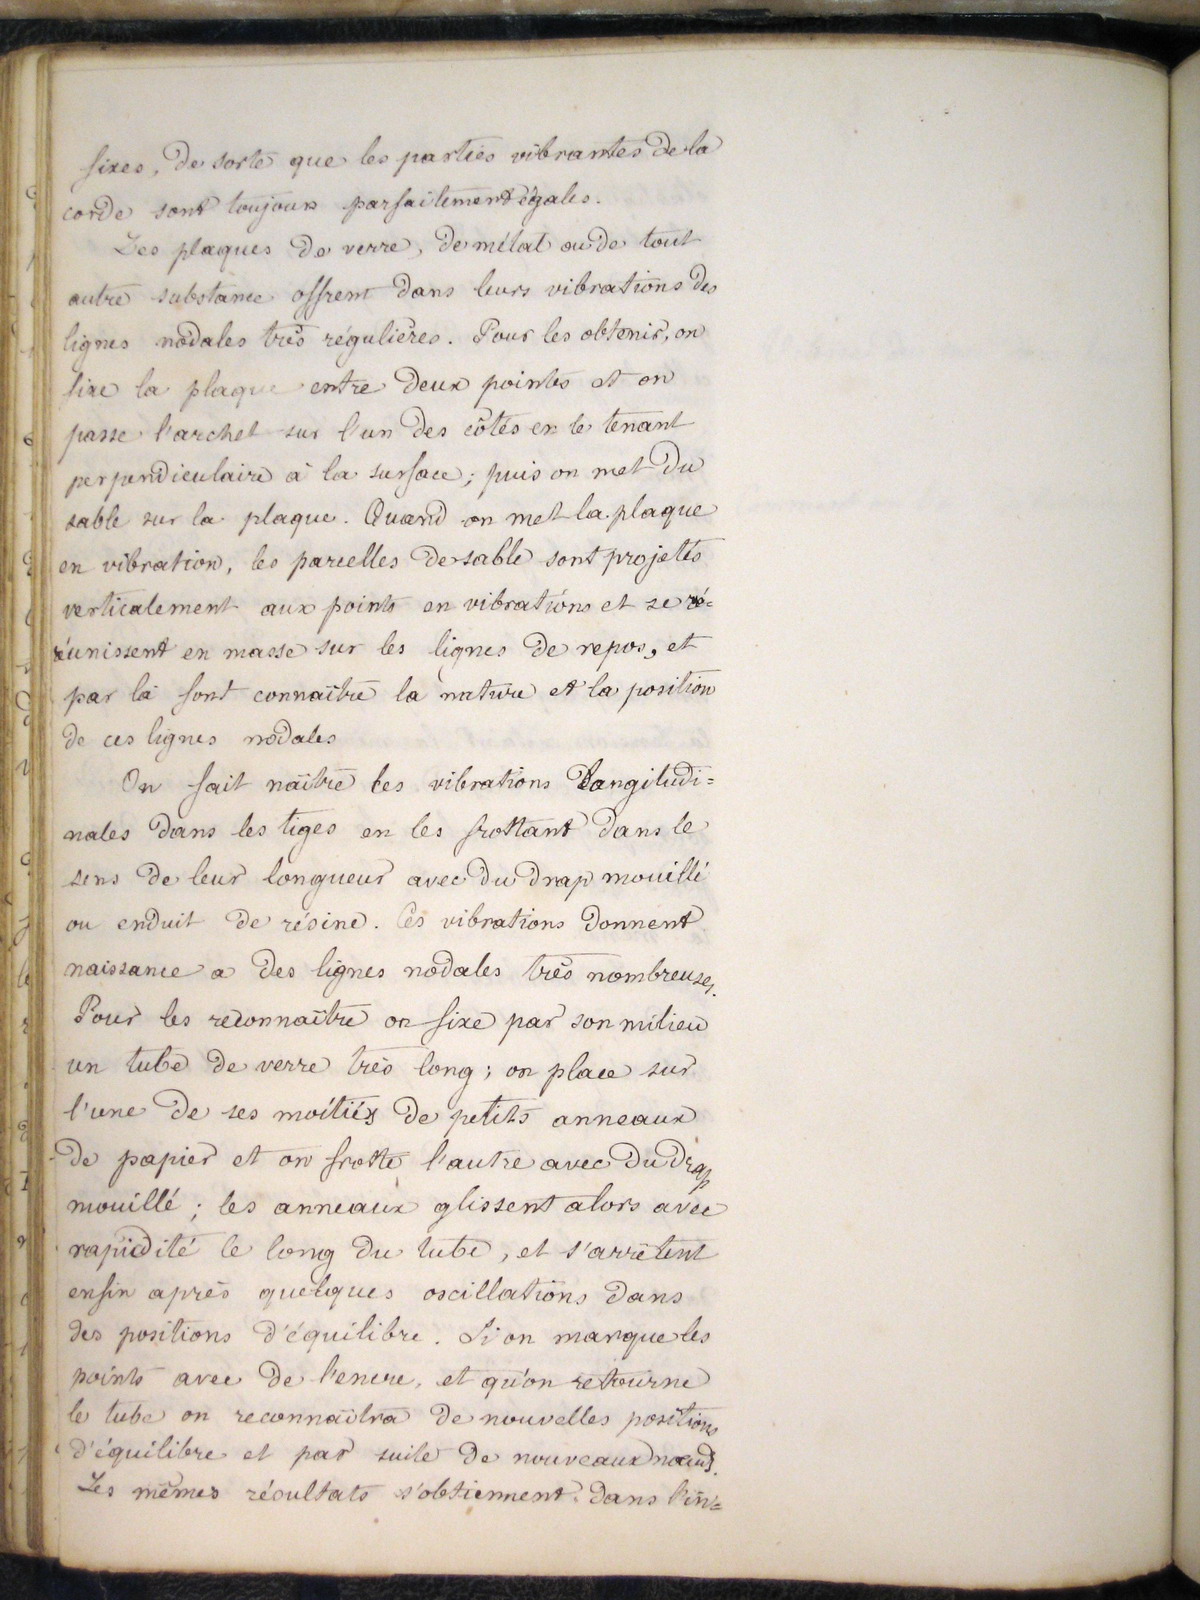 fixes, de sorte que les parties vibrantes de la
corde sont toujours parfaitement égales.
Les plaques de verre, de métal ou de tout
autre substance offrent dans leurs vibrations des
lignes nodales très régulières. Pour les obtenir, on
fixe la plaque entre deux pointes et on
passe l'archet sur l'un des côtés en le tenant
perpendiculaire à la surface; puis on met du
sable sur la plaque. Quand on met la plaque
en vibration, les parcelles de sable sont projetés
verticalement aux points en vibrations et se ré=
réunissent en masse sur les lignes de repos, et
par là font connaître la nature et la position
de ces lignes nodales
On fait naître les vibrations longitudi=
nales dans les tiges en les frottant dans le
sens de leur longueur avec du drap mouillé
ou enduit de résine. Ces vibrations donnent
naissance a des lignes nodales très nombreuses.
Pour les reconnaître on fixe par son milieu
un tube de verre très long; on place sur
l'une de ses moitiés de petits anneaux
de papier et on frotte l'autre avec du drap
mouillé; les anneaux glissent alors avec
rapidité le long du tube, et s'arrêtent
enfin après quelques oscillations dans
des positions d'équilibre. Si on marque les
points avec de l'encre, et qu'on retourne
le tube on reconnaîtra de nouvelles positions
d'équilibre et par suite de nouveaux nœuds.
Les mêmes résultats s'obtiennent dans l'in=